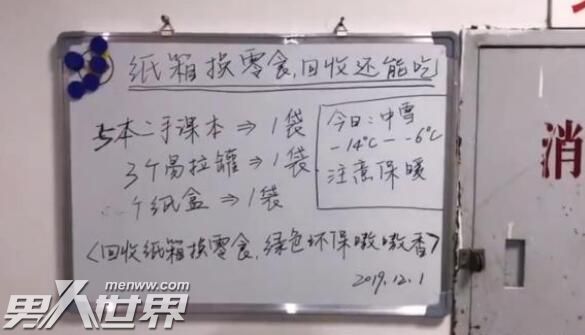 纸箱换零食,回收还能吃
5本二手课本⇒1袋
3个易拉罐⇒1袋
个纸盒⇒1袋
今日:中雪
-14℃--6℃
注意保暖
<回收纸箱换零食,绿色环保嗷嗷香>
2019.12.1
消
menww.com
男人世界